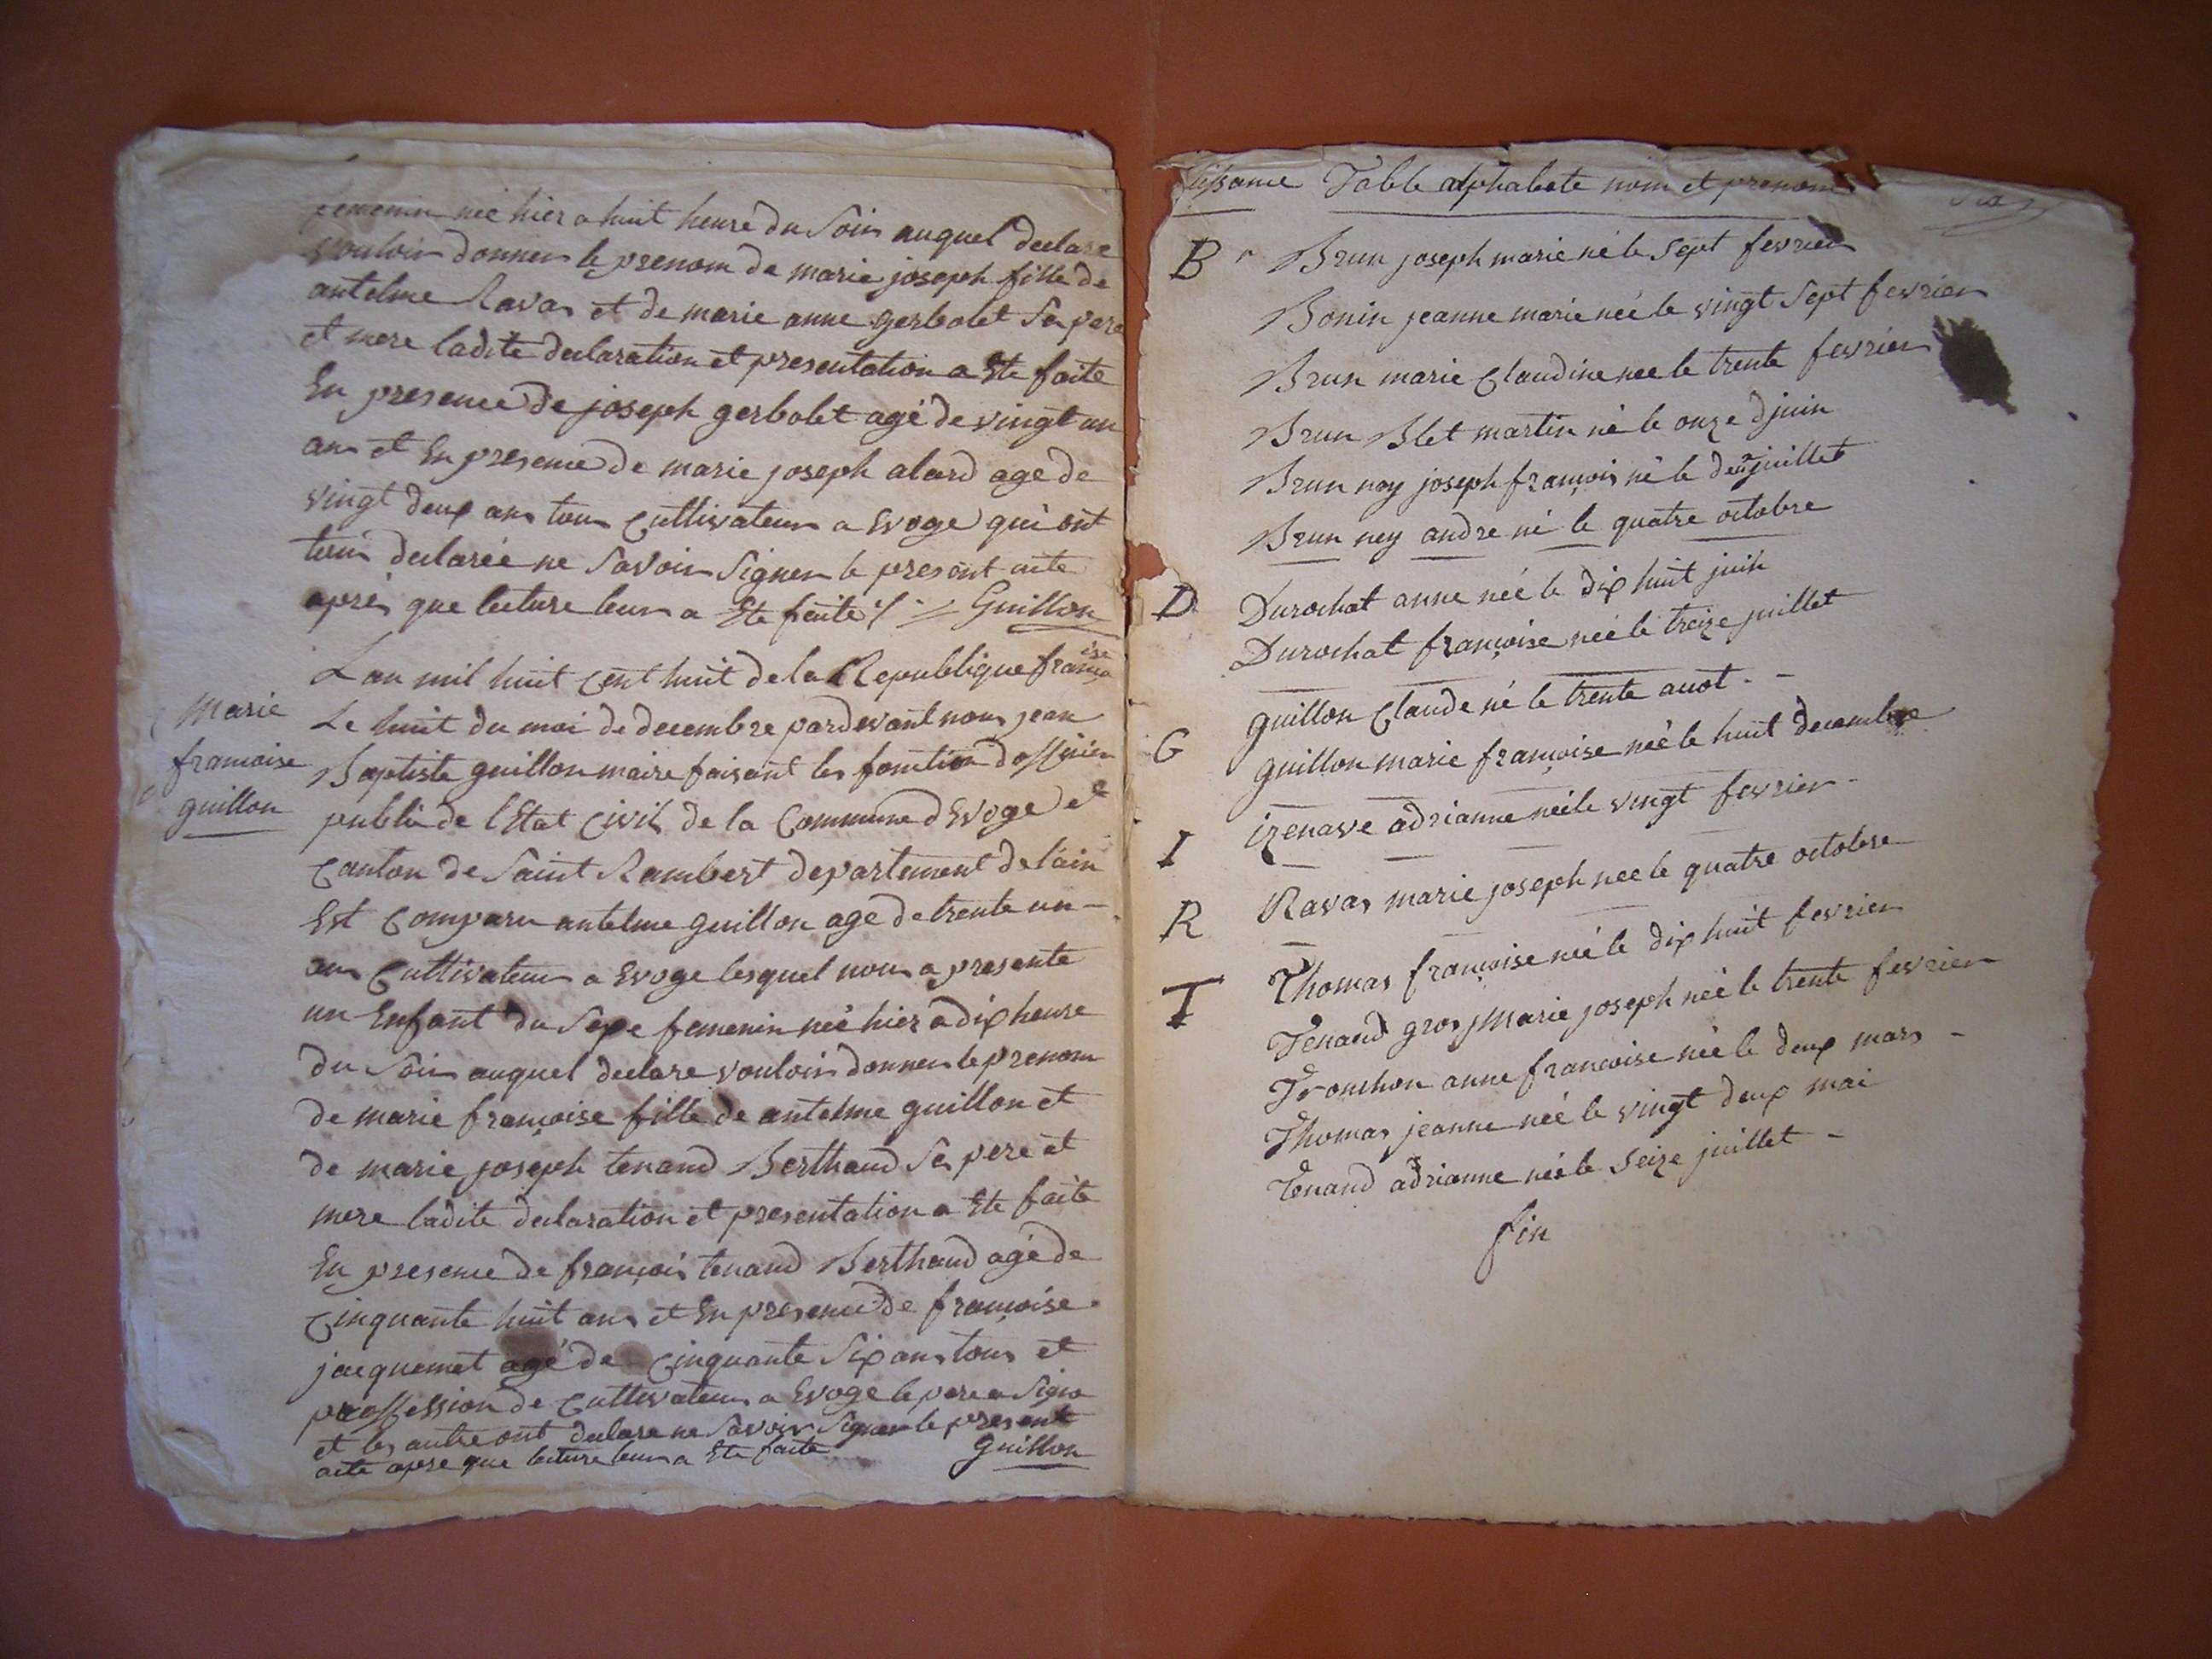 femenin neé hier a huit heure du Soir auquel declare
vouloir donner le prenom de marie joseph fille de
antelme Ravas et de marie anne gerbolet Ses pere
et mere ladite declaration et presentation a Ete faite
En presence de joseph gerbolet agé de vingt un
ans et En presence de marie joseph alard age de
vingt deux ans tous Cultivateurs a Evoge qui ont
tous declareé ne Savoir Signer le present acte
apres que lecture leurs a Ete faite Guillon
Marie
francoise
guillon
Lan mil huit Cent huit de la Republique française
Le huit du moi de decembre pardevant nous jean
Baptiste guillon maire faisant les fonction dofficier
public de lEtat Civil de la Commune dEvoge et
Canton de Saint Rambert departement de lain
Est Comparu antelme guillon age de trente un -
ans Cultivateurs a Evoge lesquel nous a presente
un Enfant du Sexe femenin neé hier a dix heure
du Soir auquel declare vouloir donner le prenom
de marie françoise fille de antelme guillon et
de marie joseph tenand Berthaud Ses pere et
mere ladite declaration et presentation a Ete faite
En presence de françois tenand Berthaud agé de
Cinquante huit ans et En presence de françoise
jacquemet agé de Cinquante Six ans tous et
proffession de Cultivateurs a Evoge le pere a Signe
et les autre ont declare ne Savoir Signer le present
acte apre que lecture leurs a Ete faite Guillon
Table alphabete nom et prenom
B Brun joseph marie né le Sept fevrier
Bonin jeanne marie neé le vingt Sept fevrier
Brun marie Claudine nee le trente fevrier
Brun Blet martin né le onze djuin
Brun noy joseph françois né le deux juillet
Brun ney andre né le quatre octobre
D Durochat anne neé le dix huit juin
Durochat françoise neé le treize juillet
guillon Claude né le trente auot - -
G guillon marie françoise neé le huit decembre
I izenave adrianne neé le vingt fevrier -
R Ravas marie joseph nee le quatre octobre
T Thomas françoise neé le dix huit fevrier
Tenand gros Marie joseph neé le trente fevrier
Tronchon anne francoise neé le deux mars -
Thomas jeanne neé le vingt deux mai
Tenand adrianne neé le Seize juillet -
fin